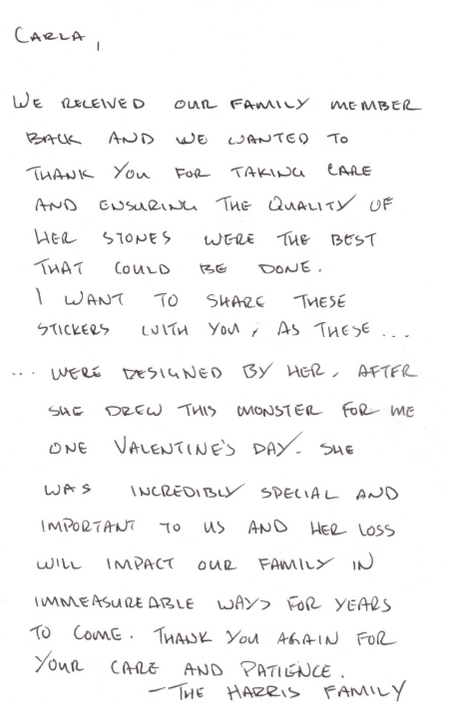 CARLA,
WE RECEIVED OUR FAMILY MEMBER
BACK AND WE WANTED TO
THANK YOU FOR TAKING CARE
AND ENSURING THE QUALITY OF
HER STONES WERE THE BEST
THAT COULD BE DONE.
I WANT TO SHARE THESE
STICKERS WITH YOU, AS THESE ...
... WERE DESIGNED BY HER, AFTER
SHE DREW THIS MONSTER FOR ME
ONE VALENTINE'S DAY. SHE
WAS INCREDIBLY SPECIAL AND
IMPORTANT TO US AND HER LOSS
WILL IMPACT OUR FAMILY IN
IMMEASUREABLE WAYS FOR YEARS
TO COME. THANK YOU AGAIN FOR
YOUR CARE AND PATIENCE.
—THE HARRIS FAMILY